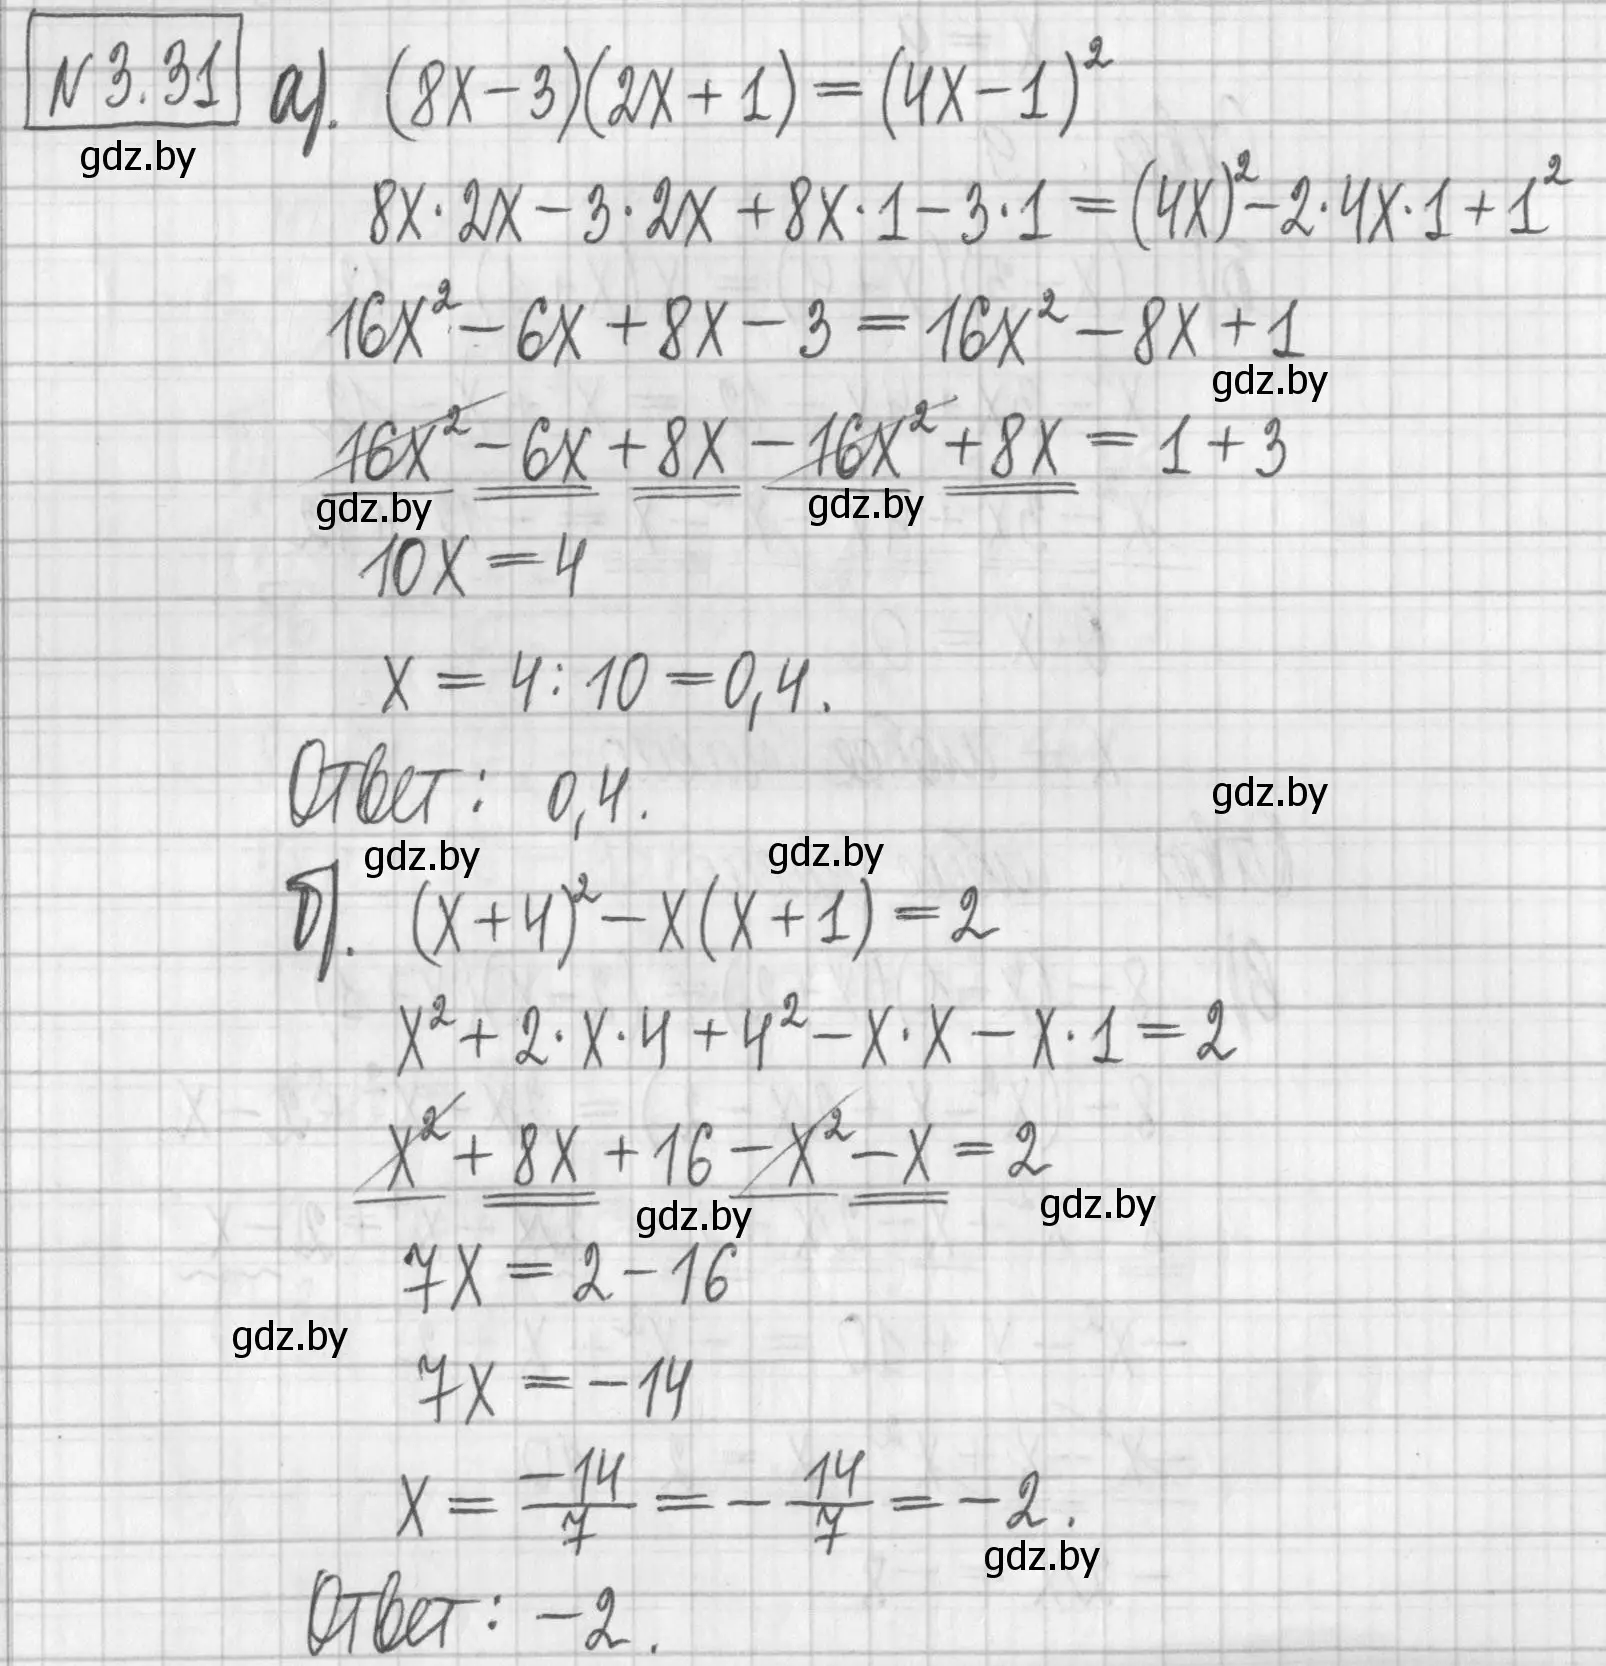 N 3.31 а). (8x-3)(2x+1)=(4x-1)²
gdz.by
8x·2x-3·2x+8x·1-3·1=(4x)²-2·4x·1+1²
16x²-6x+8x-3=16x²-8x+1
gdz.by
16x²-6x+8x-16x²+8x=1+3
gdz.by gdz.by
10x=4
x=4:10=0,4.
Ответ: 0,4.
gdz.by
gdz.by gdz.by
б). (x+4)²-x(x+1)=2
x²+2·x·4+4²-x·x-x·1=2
x²+8x+16-x²-x=2
gdz.by gdz.by
7x=2-16
gdz.by
7x=-14
x=-14/7=-14/7=-2.
gdz.by
Ответ: -2.